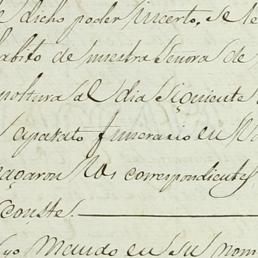 dicho poder inserto, se le
abito de nuestra Señora de
al dia siguiente
aparato funerario en
pagaron los correspondientes
conste.
yo Mando en su nom